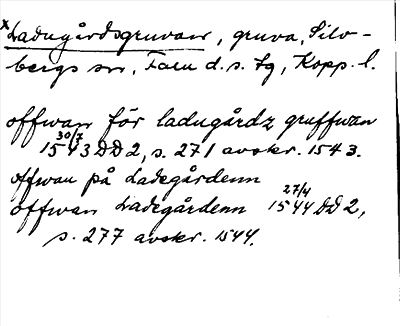 x Ladugårdsgruvan, gruva, Silv-
bergs sn, Falu d.s. tg, Kopp. l.
offwan för ladugårdz gruffwan
30/7 1543 DD 2, s. 271 avskr. 1543.
offwan på Ladegårdenn
offwan Ladegårdenn 27/4 1544 DD 2,
s. 277 avskr. 1544.